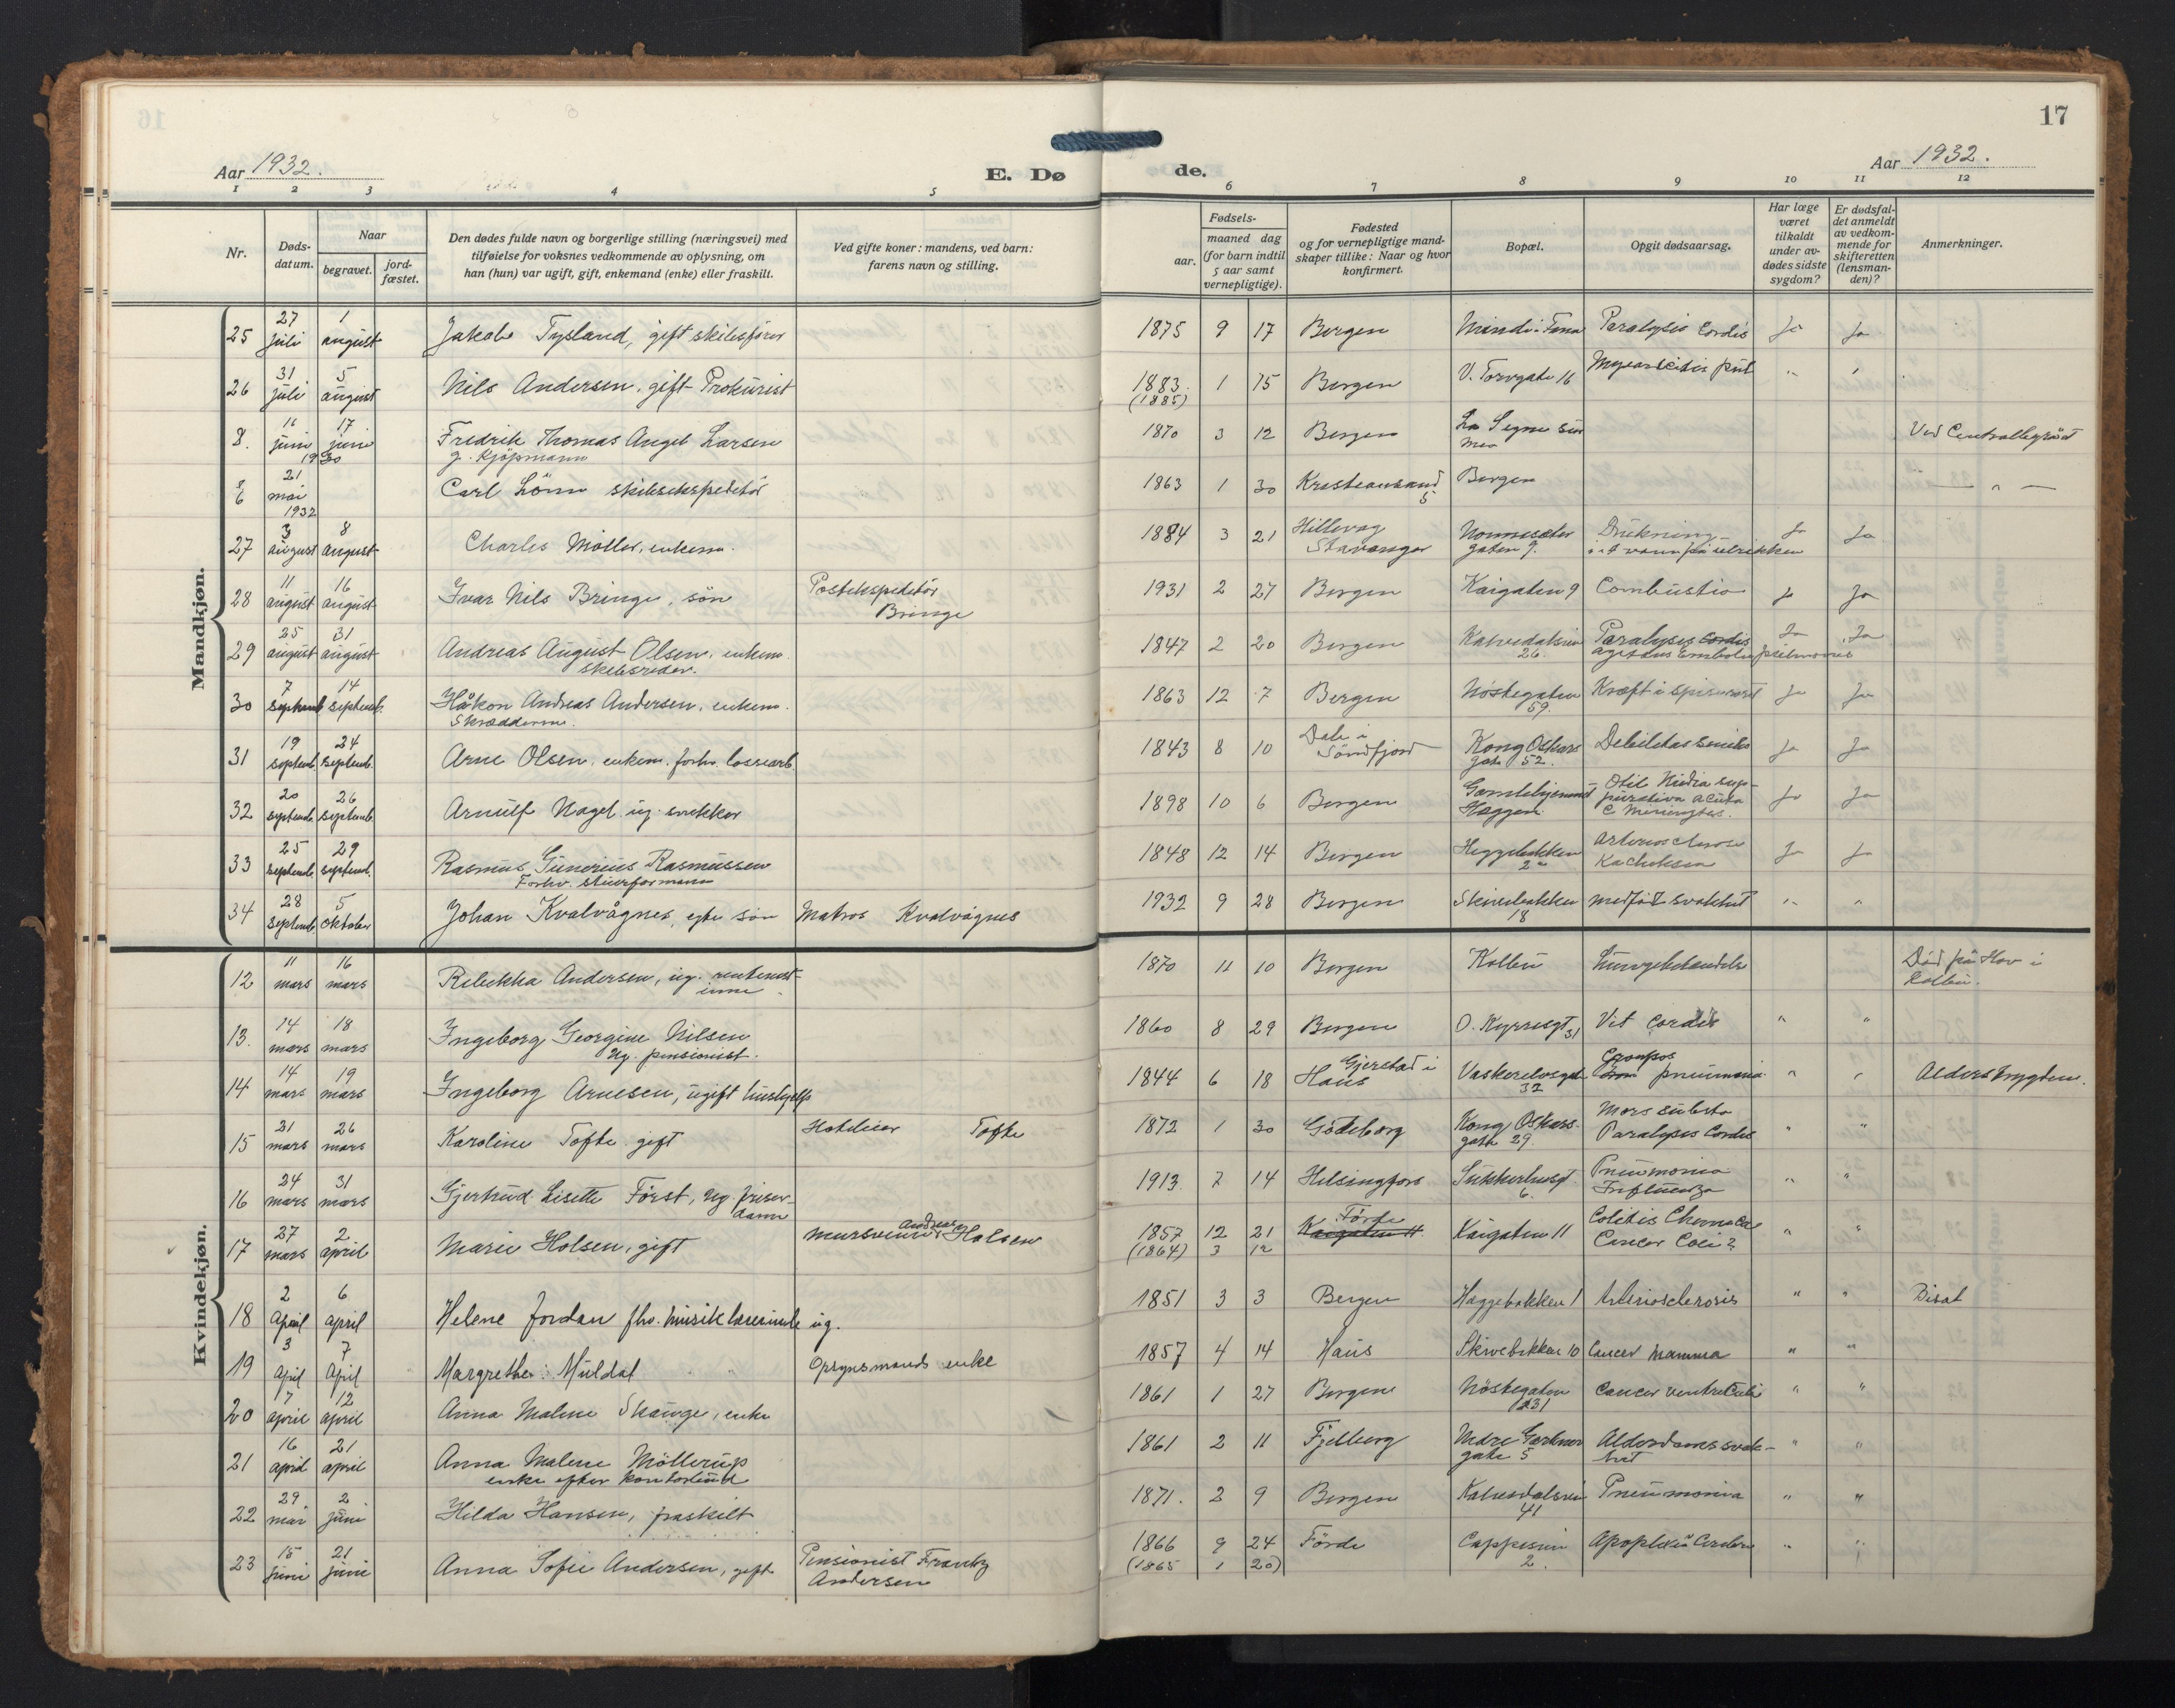 16
17
Aar 1932.
E. Dø
de.
Aar 1932.
1 2 3 4 5
6 7 8 9 10 11 12
Nr.
Døds-
datum.
Naar
begravet.
jord-
fæstet.
Den dødes fulde navn og borgerlige stilling (næringsvei) med
tilføielse for voksnes vedkommende av oplysning, om
han (hun) var ugift, gift, enkemand (enke) eller fraskilt.
Ved gifte koner: mandens, ved barn:
farens navn og stilling.
Fødsels-
aar.
maaned dag
(for barn indtil
5 aar samt
vernepligtige).
Fødested
og for vernepligtige mand-
skaper tillike: Naar og hvor
konfirmert.
Bopæl.
Opgit dødsaarsag.
Har læge
været
tilkaldt
under av-
dødes sidste
sygdom?
Er dødsfal-
det anmeldt
av vedkom-
mende for
skifteretten
(lensman-
den)?
Anmerkninger.
Mandkjøn.
25 27 juli 1 august Jakob Tysland, gift skibsfører 1875 9 17 Bergen Minde i Fana Paralysis Cordis Ja Ja
26 31 juli 5 august Nils Andersen, gift Prokurist 1883 (1885) 1 15 Bergen V. Torvgate 16
8. 16 juni 1930 17 juni Fredrik Thomas Angel Larsen
g. Kjøpmann 1870 3 12 Bergen La Segne sur mer Ved Centralbyrået
6 21 mai 1932 Carl Lönn skibsekspeditør 1863 1 30 Kristiansand S Bergen — " —
27 3 august 8 august Charles Møller, enkem. 1884 3 21 Hillevåg Stavanger Nonneseter gaten 9. Drukning i et vann på Ulrikken Ja Ja
28 11 august 16 august Ivar Nils Bringe, søn Postekspeditør Bringe 1931 2 27 Bergen Kaigaten 9 Combustio Ja Ja
29 25 august 31 august Andreas August Olsen, enkem.
skibsreder. 1847 2 20 Bergen Kalvedalsvei 26. Paralysis Cordis agitans Embolia pulmones Ja Ja
30 7 septemb 14 septemb. Håkon Andreas Andersen, enkem.
Skrædderm. 1863 12 7 Bergen Nöstegaten 59. Kræft i spiserøret Ja Ja
31 19 septemb. 24 septemb. Arne Olsen, enkem. forhv. lossearb. 1843 8 10 Dale i Söndfjord Kong Oskars gate 52. Debilitas senilis Ja Ja
32 20 septemb. 26 septemb. Arnulf Nagel ug. snekker 1898 10 6 Bergen Gamlehjemmet Hæggen Otit Media suppurativa acuta c. Meningitis. Ja Ja
33 25 septemb. 29 septemb. Rasmus Gunerius Rasmussen
Forhv. stuerformann 1848 12 14 Bergen Heggebakken 2a Arteriosclerose Kacheksia Ja Ja
34 28 septemb. 5 oktober Johan Kvalvågnes, egte søn Matros Kvalvågnes 1932 9 28 Bergen Skivebakken 18 medfødt svakhet " "
Kvindekjøn.
12 11 mars 16 mars Rebekka Andersen, ug. rentenist-
inne. 1870 11 10 Bergen Kolbu Lungebetændelse Død på Hov i Kolbu.
13. 14 mars 18 mars Ingeborg Georgine Nilsen
Ug. pensionist. 1860 8 29 Bergen O. Kyrresgt 31 Vit cordis " "
14 14 mars 19 mars Ingeborg Arnesen, ugift hushjelp 1844 6 18 Gjerstad i Haus Vaskerelvsgt 32 Croupøs pneumonia " " Alderstrygden.
15 21 mars 26 mars Karoline Tofte gift Hotelier Tofte 1872 1 30 Göteborg Kong Oskars gate 29. Mors subita Paralysis Cordis " "
16 24 mars 31 mars Gjertrud Lisette Först, ug. friser-
dame 1913 2 14 Helsingfors Sukkerhusgt. 6. Pneumonia Influenza " "
17 27 mars 2 april Marie Holsen, gift Mursvenn Andreas Holsen 1857 12 21 (1864) 3 12 Förde Kaigaten 11 Kaigaten 11 Colitis Chronica Cancer Coli? " "
18 2 April 6 april Helene Jordan fhv. Musiklærerinde ug. 1851 3 3 Bergen Hæggebakken 1 Arteriosclerosis " " Bisat
19 3 April 7 April Margrethe Muldal Opsynsmands enke 1857 4 14 Haus Skivebakken 10 Cancer mamma " "
20 7 april 12 april Anna Malene Skauge, enke 1861 1 27 Bergen Nöstegaten 131 Cancer ventriculi " "
21 16 april 21 april Anna Malene Möllerup
enke efter kontorbud 1861 2 11 Fjelberg Nedre Gartner gate 5 Alderdomssvak-
het " "
22 29 mai 2 juni Hilda Hansen, fraskilt 1871. 2 9 Bergen Kalvedalsvei 41 Pneumonia " "
23 15 juni 21 juni Anna Sofie Andersen, gift Pensionist Frantz Andersen 1866 9 24 (1865 1 20) Förde Cappesvei 2. Apoplexia Cerebri " "